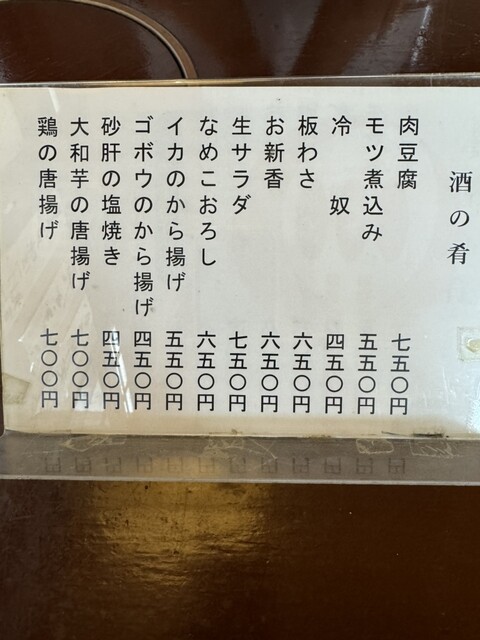 酒の肴
肉豆腐 七五〇円
モツ煮込み 五五〇円
冷奴 四五〇円
板わさ 六五〇円
お新香 六五〇円
生サラダ 七五〇円
なめこおろし 六五〇円
イカのから揚げ 五五〇円
ゴボウのから揚げ 四五〇円
砂肝の塩焼き 四五〇円
大和芋の唐揚げ 七〇〇円
鶏の唐揚げ 七〇〇円